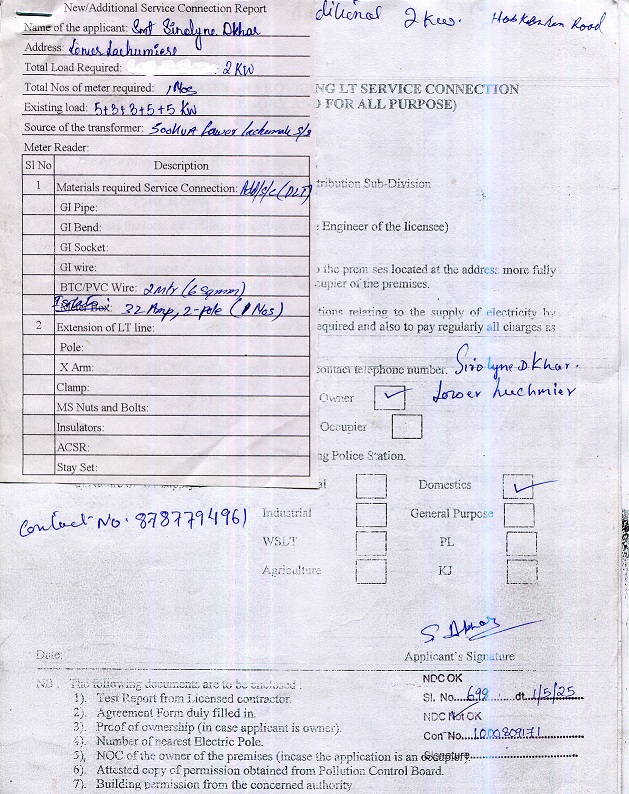 New/Additional Service Connection Report
Name of the applicant: Smt Sirolyne Dkhar
Address: Lower Lachumiere
Total Load Required: 2 KW
Total Nos of meter required: 1 Nos
Existing load: 5+3+3+5+5 KW
Source of the transformer: Lower Lachumiere S/S
Meter Reader:
Sl No Description
1 Materials required Service Connection: Add/s/c (DLT)
GI Pipe:
GI Bend:
GI Socket:
GI wire:
BTC/PVC Wire: 2 Mtr (6 sqmm)
Meter Box: 32 Amp, 2-pole (1 Nos)
2 Extension of LT line:
Pole:
X Arm:
Clamp:
MS Nuts and Bolts:
Insulators:
ACSR:
Stay Set:
ditional 2 KW. Road
NG LT SERVICE CONNECTION
FOR ALL PURPOSE)
tribution Sub-Division
Engineer of the licensee)
the premises located at the address more fully
cupier of the premises.
tions relating to the supply of electricity by
equired and also to pay regularly all charges as
contact telephone number. Sirolyne Dkhar.
Lower Luchmier
Owner
Occupier
ng Police Station.
al Domestics
Contact No: 8787794961
Industrial General Purpose
WSLT PL
Agriculture KJ
S Dkhar
Date: Applicant's Signature
NB : The following documents are to be enclosed :
1). Test Report from Licensed contractor.
2). Agreement Form duly filled in.
3). Proof of ownership (in case applicant is owner).
4). Number of nearest Electric Pole.
5), NOC of the owner of the premises (incase the application is an occupier).
6). Attested copy of permission obtained from Pollution Control Board.
7). Building permission from the concerned authority
NDC OK
Sl. No....698....dt. 1/5/25
NDC Not OK
Con No...1000809171
Signature